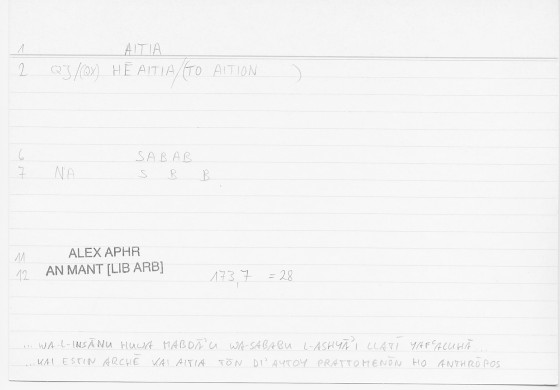 1 AITIA
2 QJ/(QX) HĒ AITIA/(TO AITION )
6 SABAB
7 NA S B B
11 ALEX APHR
12 AN MANT [LIB ARB] 173,7 =28
... WA-L-INSĀNU HUWA MABDAʾU WA-SABABU L-ASHYĀʾI LLATĪ YAFʿALUHĀ ...
... KAI ESTIN ARCHĒ KAI AITIA TŌN DI' AYTOY PRATTOMENŌN HO ANTHRŌPOS